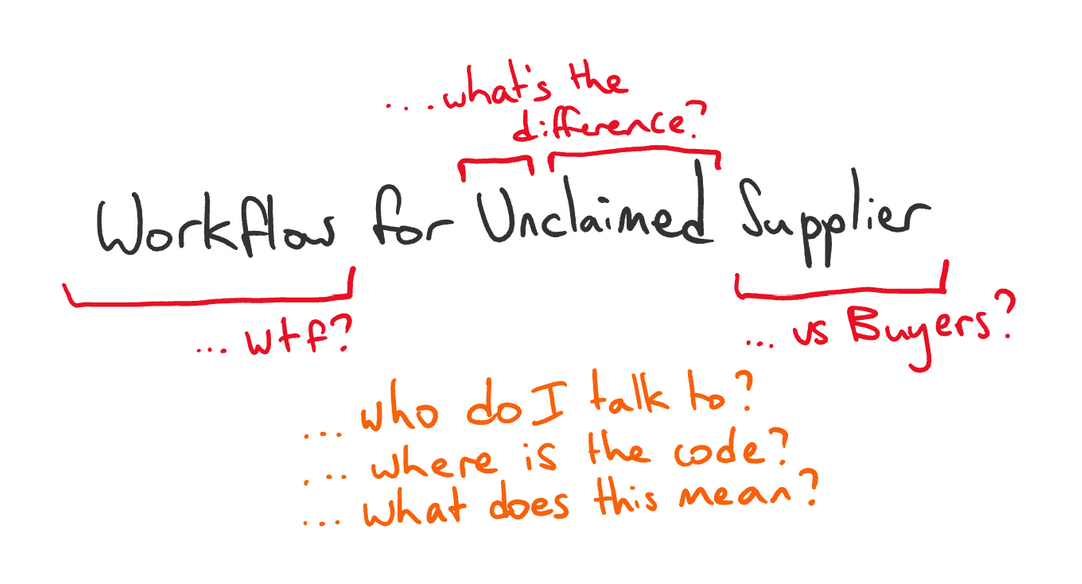 ...what's the
difference?
Workflow for Unclaimed Supplier
... wtf?
... vs Buyers?
... who do I talk to?
... where is the code?
... what does this mean?